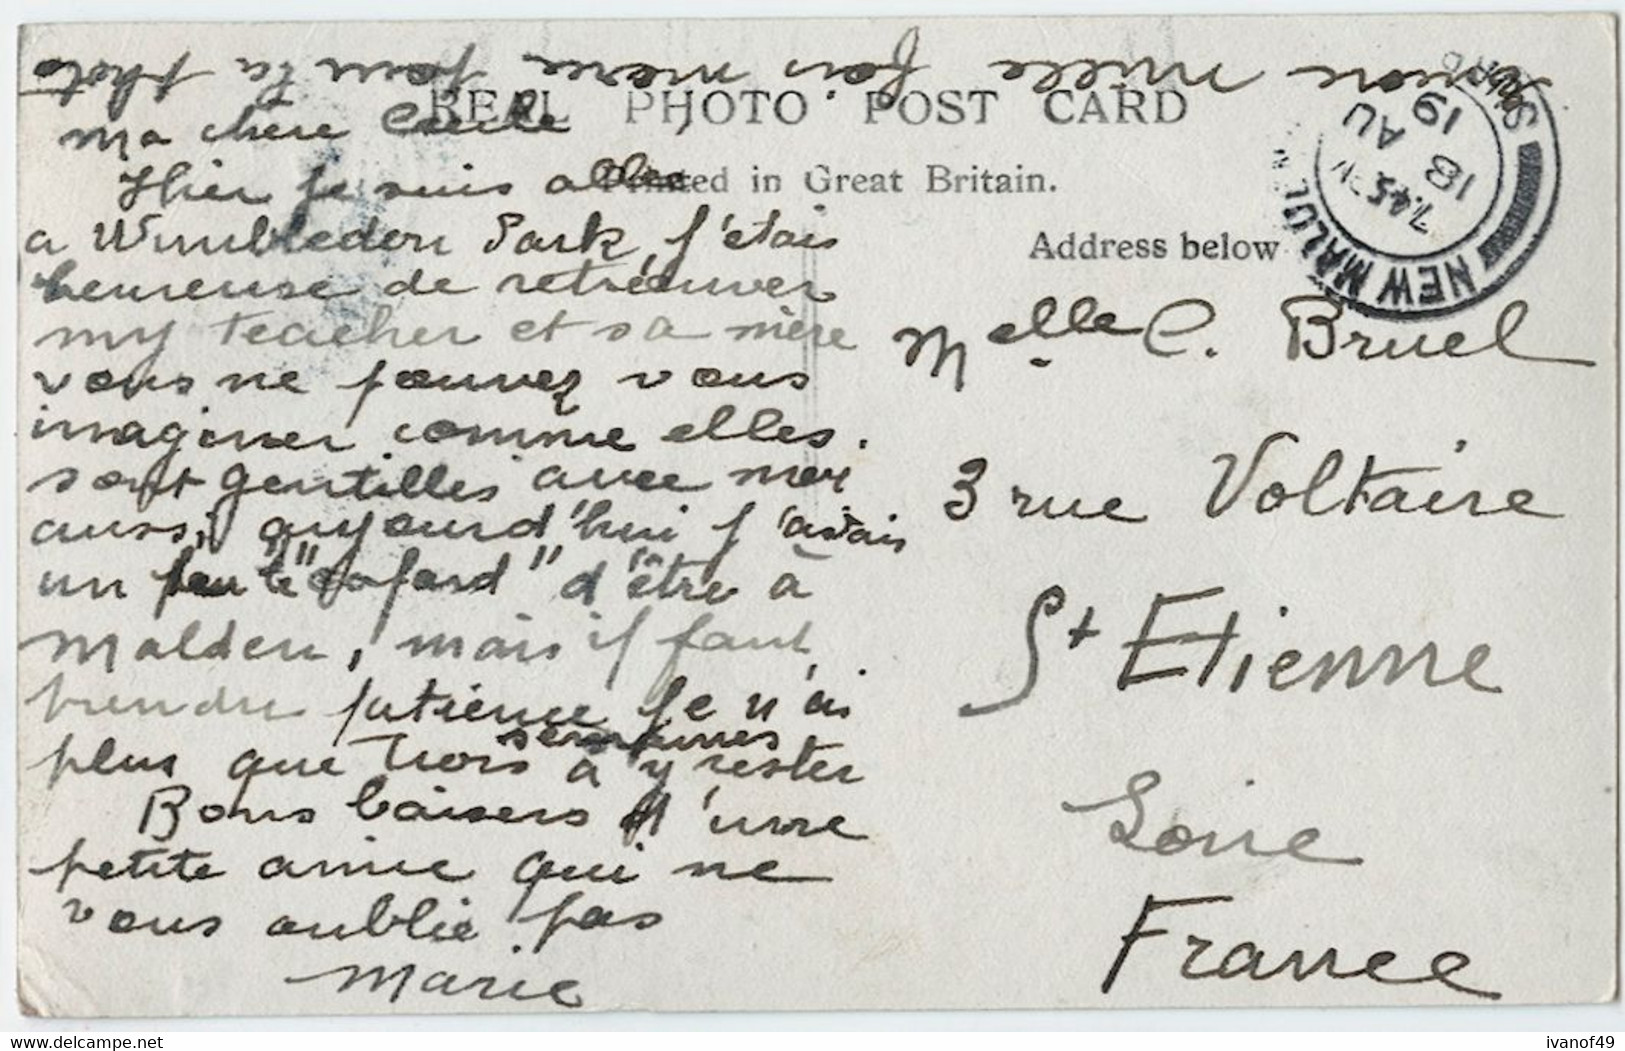 encore mille fois merci pour la photo
REAL PHOTO POST CARD
Printed in Great Britain.
Address below
NEW MALDEN
7.45 PM
18 AU
19
Ma chère Cécile
Hier je suis allée
a Wimbledon Park, j'etais
heureuse de retrouver
my teacher et sa mère
vous ne pouvez vous
imaginer comme elles
sont gentilles avec moi
aussi, aujourd'hui j'avais
un peu le "cafard" d'être à
Malden, mais il faut
prendre patience je n'ai
plus que trois semaines à y rester
Bons baisers d'une
petite amie qui ne
vous oublie pas
Marie
Melle C. Bruel
3 rue Voltaire
St Etienne
Loire
France
ivanof49